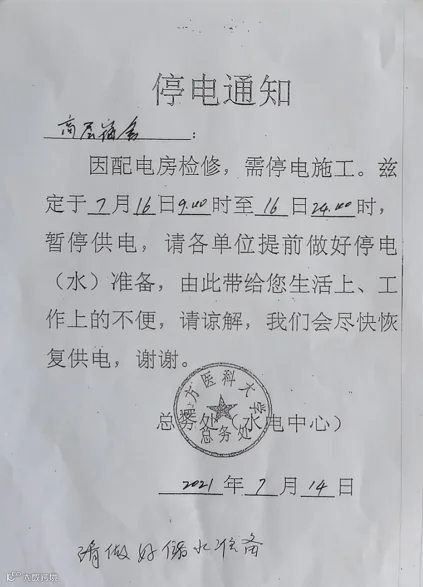 停电通知
高层宿舍：
因配电房检修，需停电施工。兹
定于7月16日9:00时至16日24:00时，
暂停供电，请各单位提前做好停电
（水）准备，由此带给您生活上、工
作上的不便，请谅解，我们会尽快恢
复供电，谢谢。
南方医科大学
总务处（水电中心）
总务处
2021年7月14日
请做好储水准备